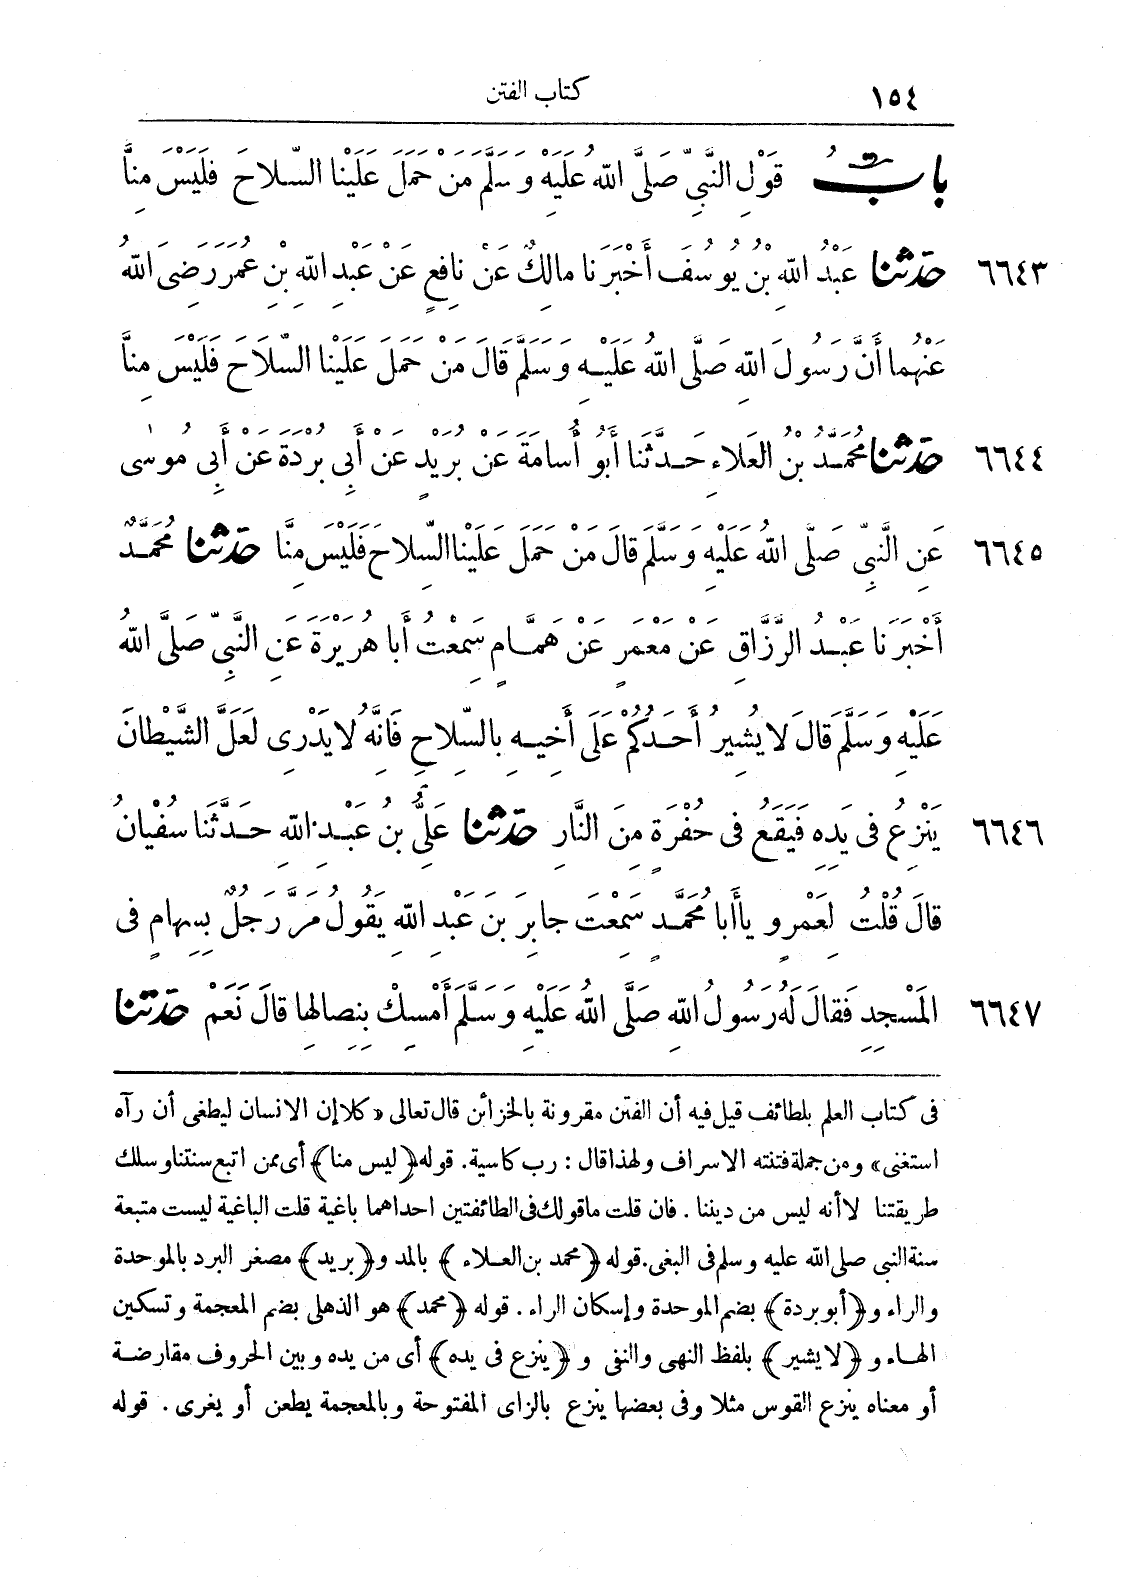 ١٥٤ كتاب الفتن
بابُ قَوْلِ النَّبِيِّ صَلَّى اللهُ عَلَيْهِ وَسَلَّمَ مَنْ حَمَلَ عَلَيْنَا السِّلَاحَ فَلَيْسَ مِنَّا
٦٦٤٣ حدثنا عَبْدُ اللهِ بْنُ يُوسُفَ أَخْبَرَنَا مالِكٌ عَنْ نافِعٍ عَنْ عَبْدِ اللهِ بْنِ عُمَرَ رَضِىَ اللهُ
عَنْهُما أَنَّ رَسُولَ اللهِ صَلَّى اللهُ عَلَيْهِ وَسَلَّمَ قَالَ مَنْ حَمَلَ عَلَيْنا السِّلَاحَ فَلَيْسَ مِنَّا
٦٦٤٤ حدثنا مُحَمَّدُ بْنُ العَلاءِ حَدَّثَنا أَبُو أُسامَةَ عَنْ بُرَيْدٍ عَنْ أَبِى بُرْدَةَ عَنْ أَبِى مُوسٰى
٦٦٤٥ عَنِ النَّبِيِّ صَلَّى اللهُ عَلَيْهِ وَسَلَّمَ قالَ مَنْ حَمَلَ عَلَيْنا السِّلاحَ فَلَيْسَ مِنَّا حدثنا مُحَمَّدٌ
أَخْبَرَنا عَبْدُ الرَّزَّاقِ عَنْ مَعْمَرٍ عَنْ هَمَّامٍ سَمِعْتُ أَبا هُرَيْرَةَ عَنِ النَّبِيِّ صَلَّى اللهُ
عَلَيْهِ وَسَلَّمَ قالَ لا يُشِيرُ أَحَدُكُمْ عَلَى أَخِيهِ بِالسِّلاحِ فَإِنَّهُ لا يَدْرِى لَعَلَّ الشَّيْطانَ
٦٦٤٦ يَنْزِعُ فى يَدِهِ فَيَقَعُ فى حُفْرَةٍ مِنَ النَّارِ حدثنا عَلِىُّ بْنُ عَبْدِ اللهِ حَدَّثَنا سُفْيانُ
قالَ قُلْتُ لِعَمْرٍو يا أَبا مُحَمَّدٍ سَمِعْتَ جابِرَ بْنَ عَبْدِ اللهِ يَقُولُ مَرَّ رَجُلٌ بِسِهامٍ فى
٦٦٤٧ المَسْجِدِ فَقالَ لَهُ رَسُولُ اللهِ صَلَّى اللهُ عَلَيْهِ وَسَلَّمَ أَمْسِكْ بِنِصالِها قالَ نَعَمْ حدثنا
فى كتاب العلم بلطائف قيل فيه أن الفتن مقرونة بالخزائن قال تعالى «كلا إن الانسان ليطغى أن رآه
استغنى» ومن جملة فتنته الاسراف ولهذا قال : رب كاسية. قوله ﴿ليس منا﴾ أى ممن اتبع سنتنا وسلك
طريقتنا لا أنه ليس من ديننا . فان قلت ما قولك فى الطائفتين احداهما باغية قلت الباغية ليست متبعة
سنة النبى صلى الله عليه وسلم فى البغى. قوله ﴿محمد بن العلاء﴾ بالمد و﴿بريد﴾ مصغر البرد بالموحدة
والراء و﴿أبو بردة﴾ بضم الموحدة وإسكان الراء . قوله ﴿محمد﴾ هو الذهلى بضم المعجمة وتسكين
الهاء و﴿لا يشير﴾ بلفظ النهى والنفى و﴿ينزع فى يده﴾ أى من يده وبين الحروف مقارضة
أو معناه ينزع القوس مثلا وفى بعضها ينزع بالزاى المفتوحة وبالمعجمة يطعن أو يغرى . قوله